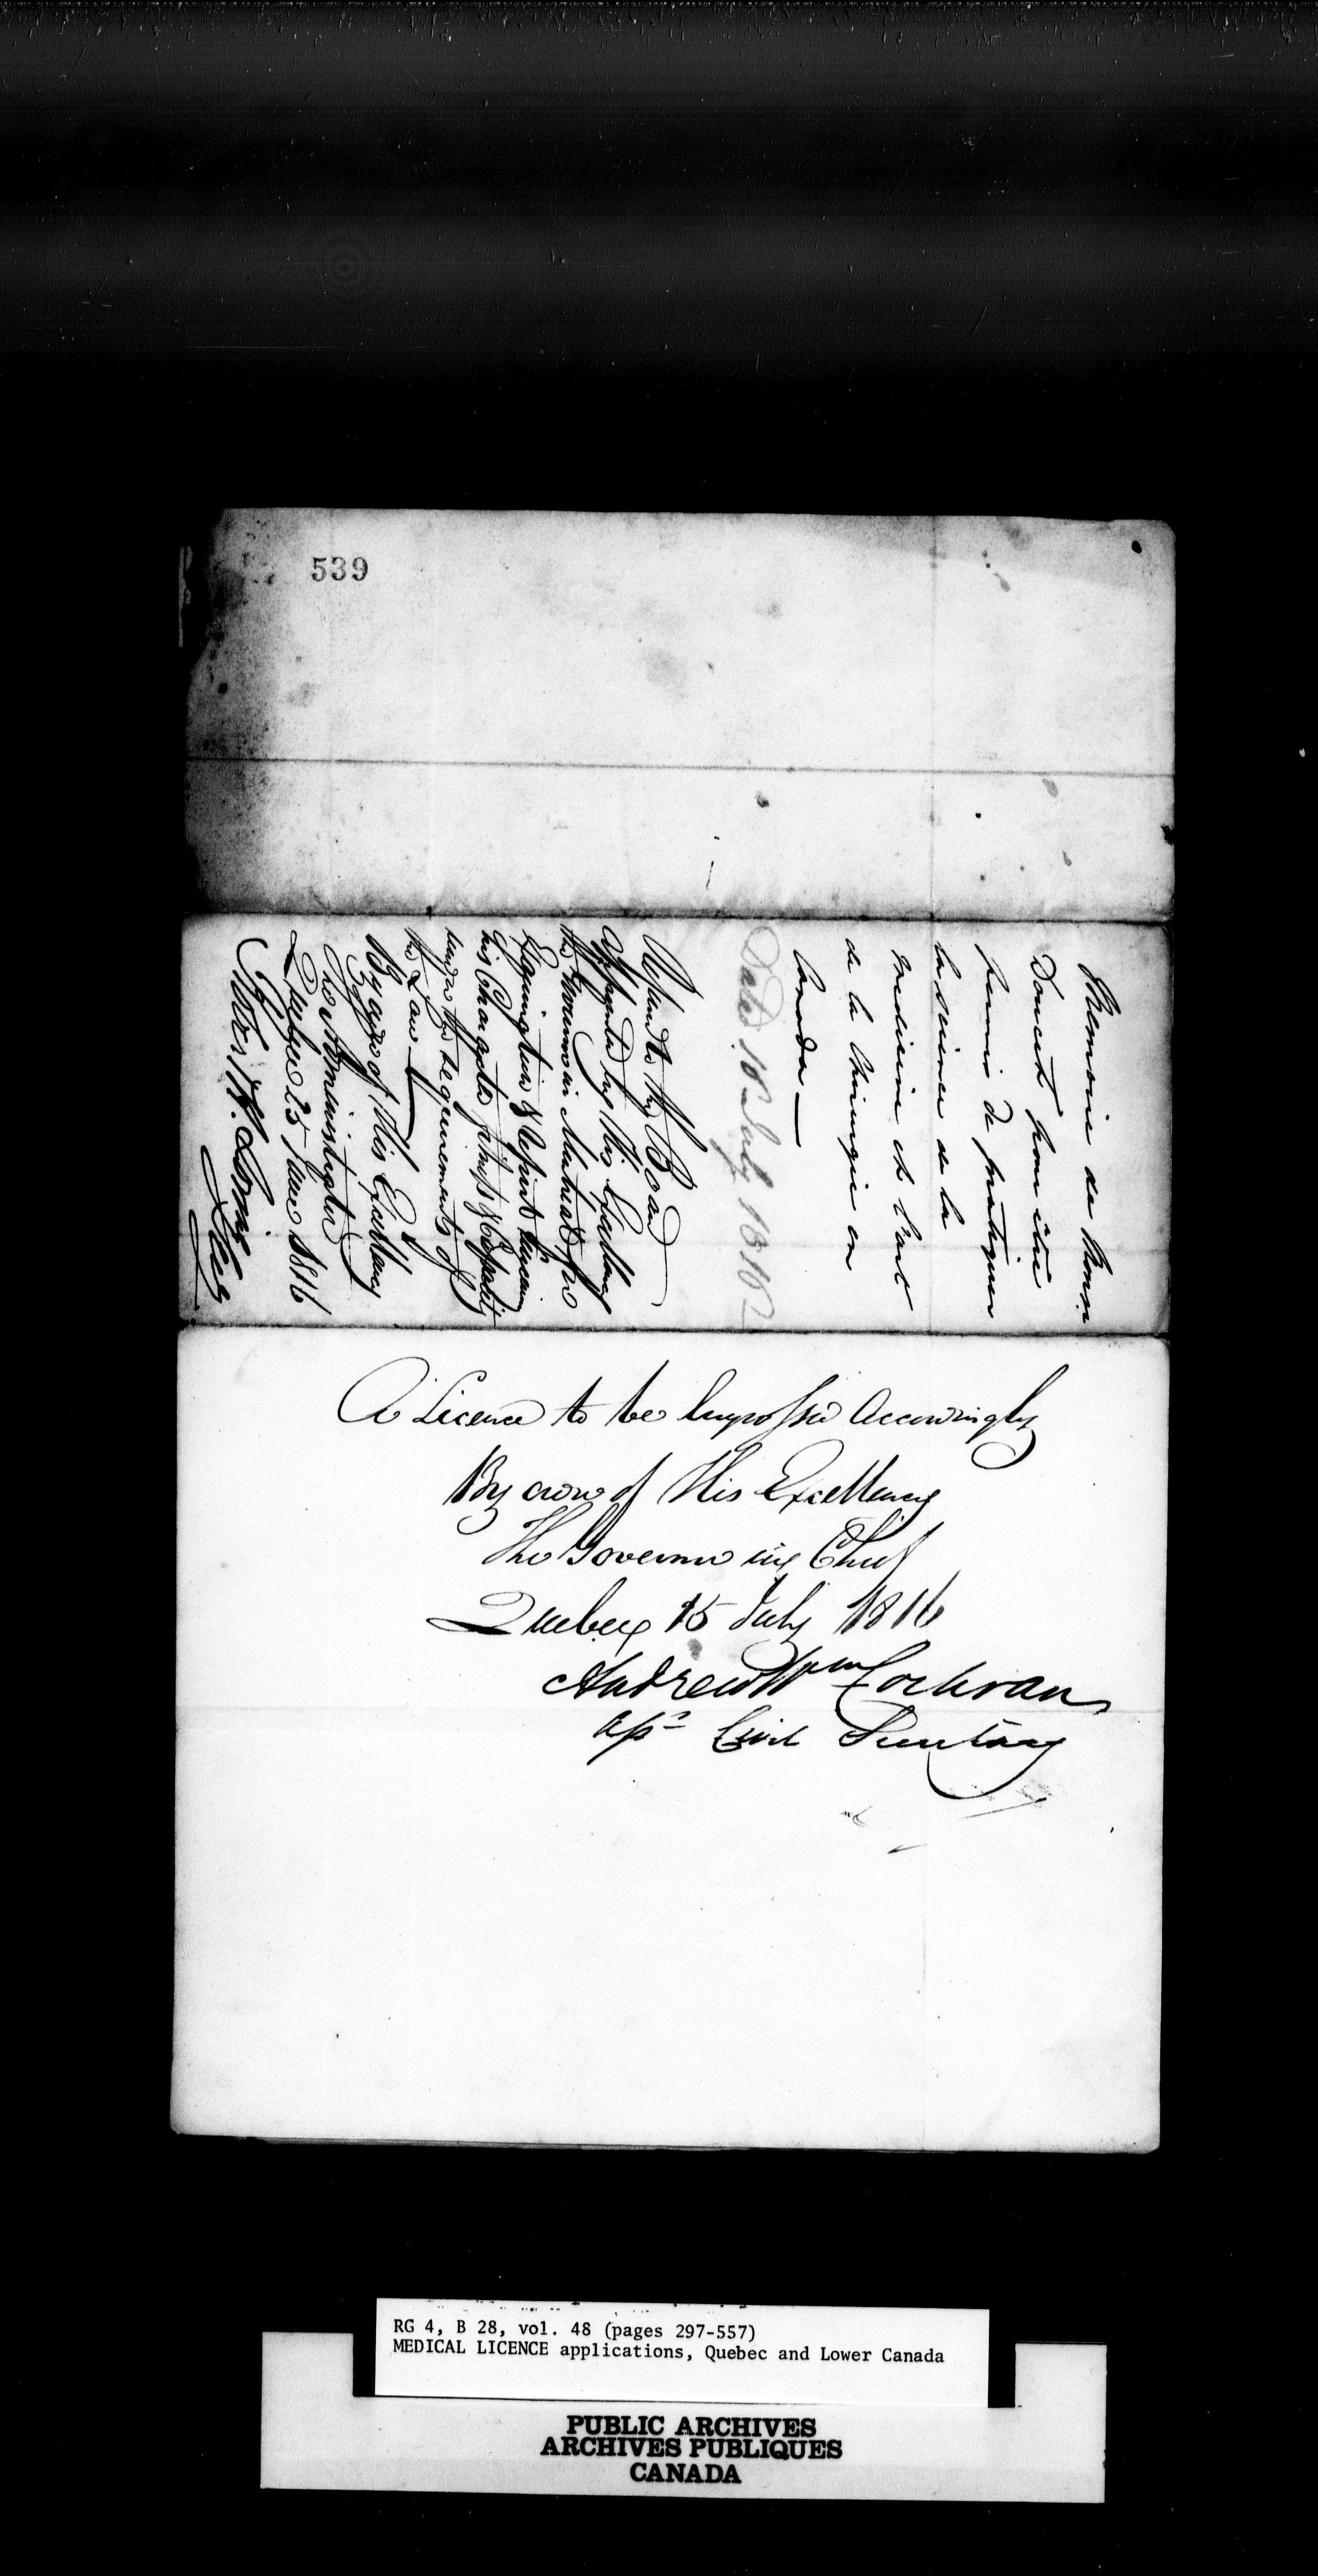 539
Memoire de Benin
Doucet pour etre
permi de pratiquer
la science de la
medicine et l'art
de la Chirurgie en
Canada —
Dated 18 July 1816
the Board
Appointed by His Excellency
the Governor in Montreal for
Enquiring into & Report upon
his Character fitness & Capacity
under the requirements of
the Law
By order of His Excellency
The Administrator
Quebec 25 June 1816
Secy
A Licence to be Impressed Accordingly
By order of His Excellency
The Governor in Chief
Quebec 15 July 1816
Andrew Wm Cochran
Asst Civil Secretary
RG 4, B 28, vol. 48 (pages 297-557)
MEDICAL LICENCE applications, Quebec and Lower Canada
PUBLIC ARCHIVES
ARCHIVES PUBLIQUES
CANADA